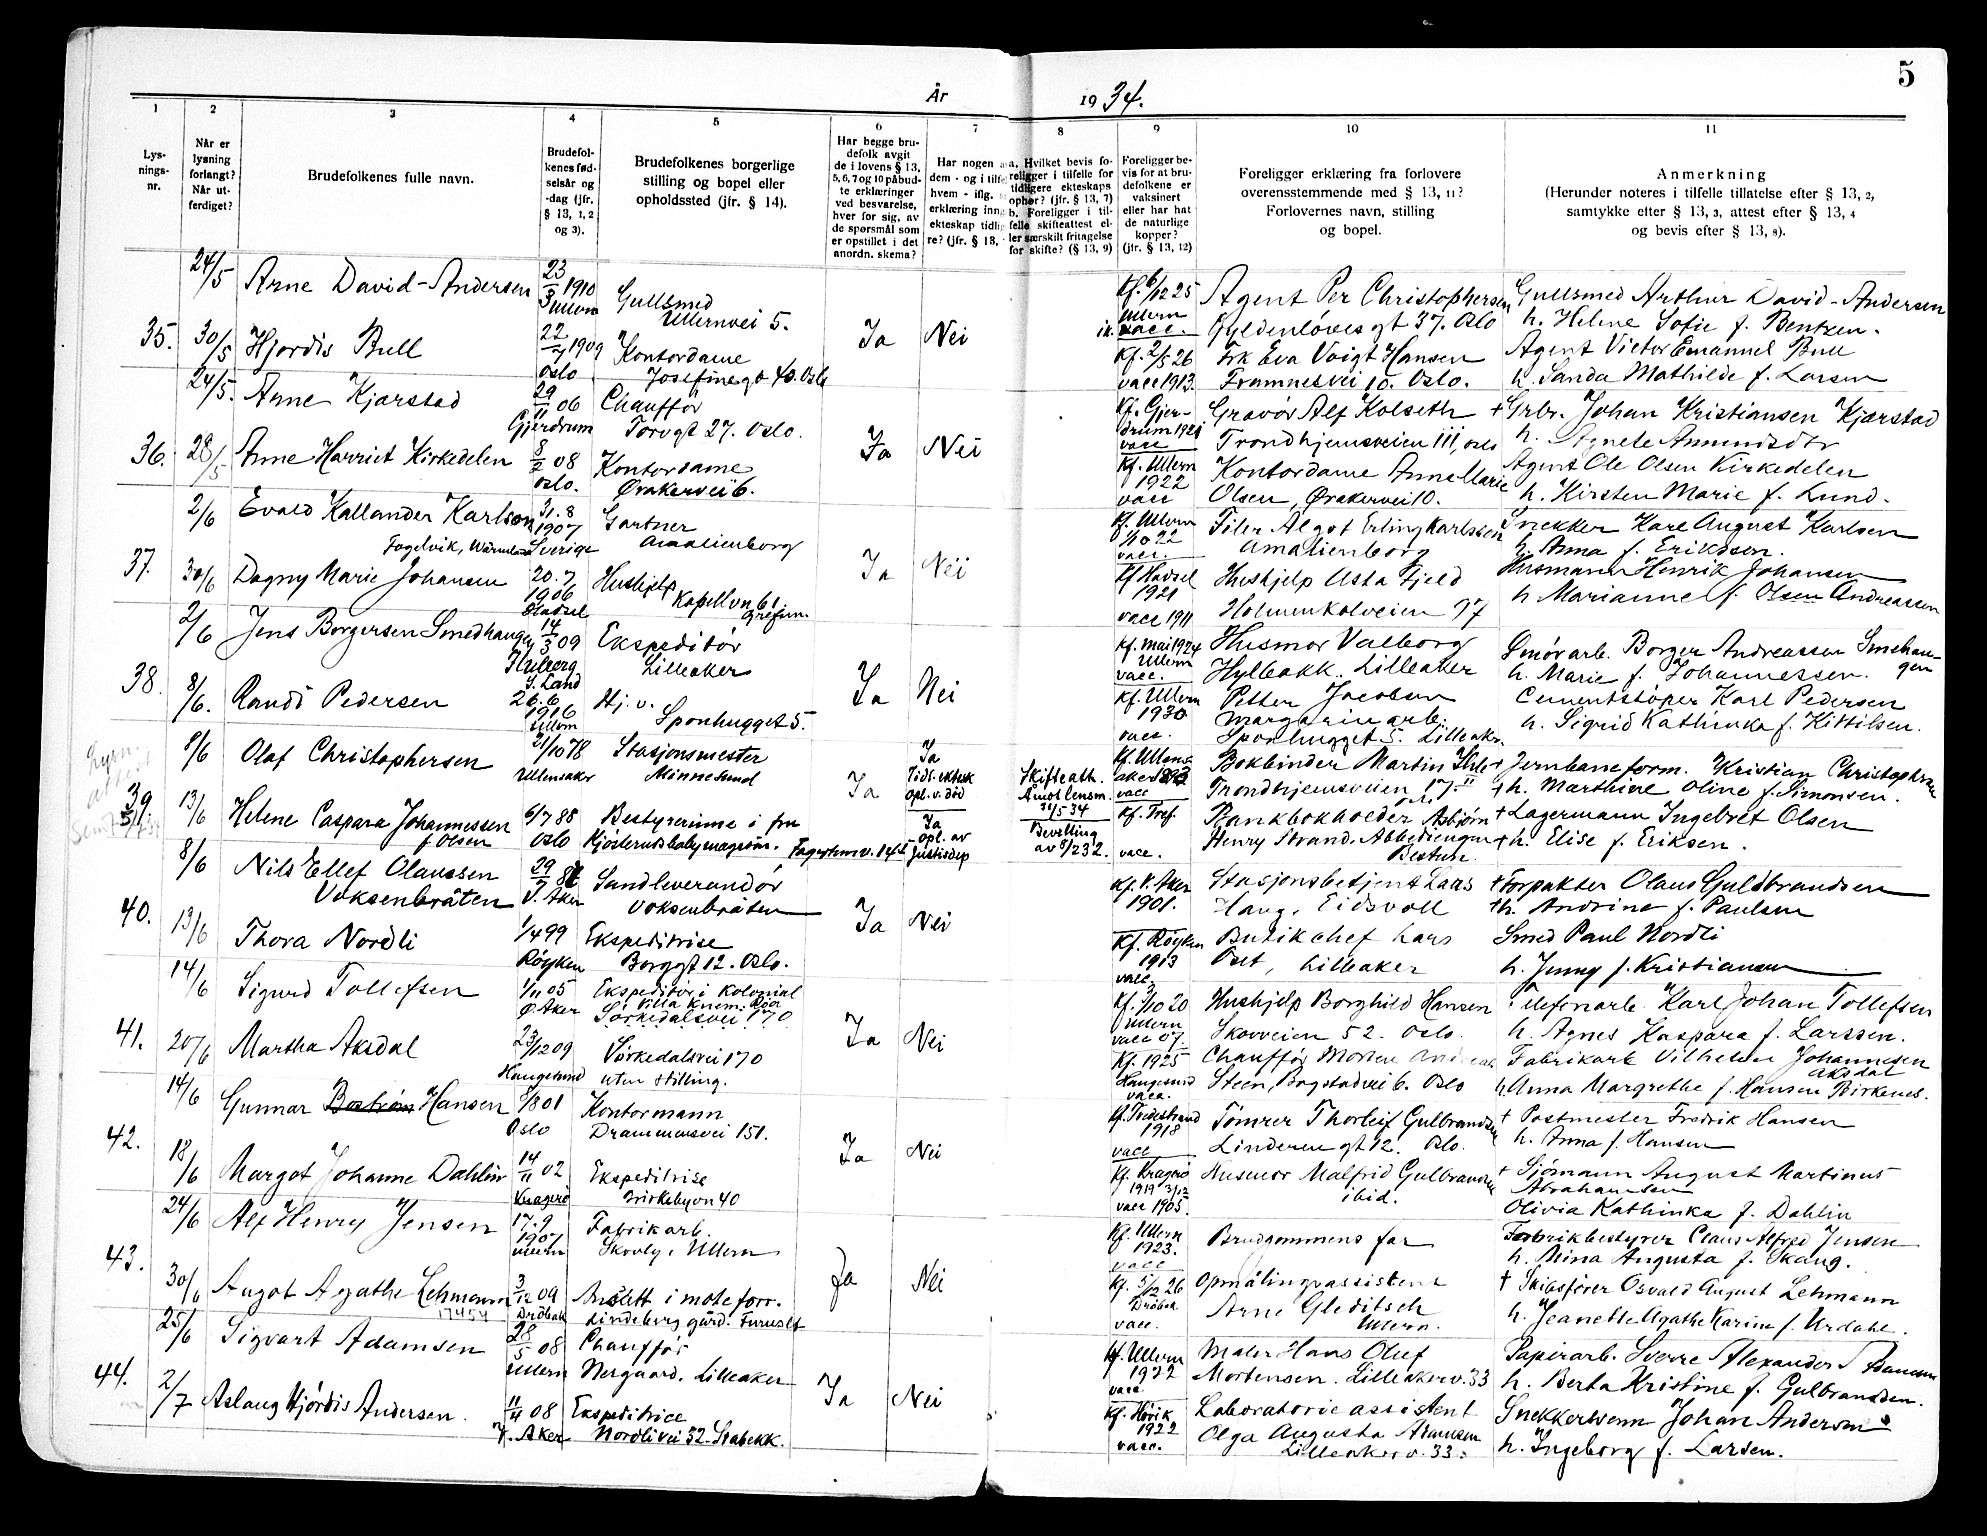 5
År 1934.
1 2 3 4 5 6 7 8 9 10 11
Lys-
nings-
nr.
Når er
lysning
forlangt?
Når ut-
ferdiget?
Brudefolkenes fulle navn.
Brudefol-
kenes fød-
selsår og
-dag (jfr.
§ 13, 1, 2
og 3).
Brudefolkenes borgerlige
stilling og bopel eller
opholdssted (jfr. § 14).
Har begge bru-
defolk avgit
de i lovens § 13,
5, 6, 7 og 10 påbud-
te erklæringer
ved besvarelse,
hver for sig, av
de spørsmål som
er opstillet i det
anordn. skema?
Har nogen
dem - og i tilfe
hvem - iflg.
erklæring inng
ekteskap tidlig
re? (jfr. § 13,
a. Hvilket bevis fo-
religger i tilfelle for
tidligere ekteskaps
ophør? (jfr. § 13, 7)
b. Foreligger i til-
felle skifteattest el-
ler særskilt fritagelse
for skifte? (§ 13, 9)
Foreligger be-
vis for at bru-
defolkene er
vaksinert
eller har hat
de naturlige
kopper?
(jfr. § 13, 12)
Foreligger erklæring fra forlovere
overensstemmende med § 13, 11?
Forlovernes navn, stilling
og bopel.
Anmerkning
(Herunder noteres i tilfelle tillatelse efter § 13, 2,
samtykke efter § 13, 3, attest efter § 13, 4
og bevis efter § 13, 8).
24/5 Arne David-Andersen 23/3 1910 Ullern Gullsmed Ullernvei 5. Kf. 6/12 25 Ullern vacc. Agent Per Christophersen Gyldenløves gt 37. Oslo Gullsmed Arthur David-Andersen h. Helene Sofie f. Bentzen.
35. 30/5 Hjordis Bull 22/7 1909 Oslo Kontordame Josefinegt 40. Oslo Ja Nei Kf. 2/5 26 vacc 1913. Frk Eva Voigt Hansen Framnesvei 10. Oslo. Agent Victor Emanuel Bull h. Sanda Mathilde f. Larsen
24/5. Arne Kjærstad 29/11 06 Gjerdrum Chauffør Torvgt 27. Oslo. Kf. Gjer-drum 1921 vacc Gravør Alf Kolseth Trondhjemsveien 111, Oslo + Grbr. Johan Kristiansen Kjærstad h. Agnete Amundsdtr
36. 28/5 Anne Harriet Kirkedelen 8/2 08 Oslo. Kontordame Ørakervei 6. Ja Nei Kf. Ullern 1922 vacc Kontordame Anne Marie Olsen, Ørakervei 10. Agent Ole Olsen Kirkedelen h. Kirsten Marie f. Lund.
2/6 Evald Kallander Karlson Fogelvik, 31.8 1907 Sverige Gartner Amalienborg Kf. Ullern 1922 vacc. Filer Algot Erling Karlssen Amalienborg Snekker Kare August Karlsen h. Anna f. Eriksson.
37. 30/6 Dagny Marie Johansen 20.7 1906 Hadsel Hushjelp Kapellvn 61 Grefsen. Ja Nei Kf Hadsel 1921 vacc 1911 Hushjelp Asta Fjeld Holmenkolveien 97 Husmann Henrik Johansen h Marianne f. Olsen Andreassen
2/6 Jens Borgersen Smedhaugen 14/3 09 S. Land Ekspeditør Lilleaker Kf. mai 1924 Ullern vacc. Husmor Valborg Hylbakk. Lilleaker Smørarb. Borger Andreassen Smehau-gen h. Marie f. Johannessen.
38. 8/6. Randi Pedersen 26.6 1916 Ullern Hj. v. Sponhugget 5. Ja Nei Kf. Ullern 1930 vacc. Petter Jacobsen margarinarb. Sponhugget 5. Lilleaker. Cementstøper Karl Pedersen h. Sigrid Kathinka f. Kittilsen.
8/6 Olaf Christophersen 21/10 78 Ullensaker Stasjonsmester Minnesund Ja Tidl. ektesk opl. v. død Skifteatt. Amot lensm. 31/5 34 Kf. Ullensaker vacc Bokbinder Martin Trondhjemsveien 17. II + Jernbaneform. Kristian Christophersen h. Marthine Oline f. Simonsen.
39 13/6 Helene Caspara Johannessen f. Olsen 6/7 88 Oslo Bestyrerinne i fru Kjøsteruds babymagasin. Fagerheimv. 14 Ja Ja opl. av Justisdep Bevilling av 6/2 32. Kf. Tref. vacc. Bankbokholder Asbjørn Henry Strand. Abbediengen Bestum + Lagermann Ingebret Olsen + h. Elise f. Eriksen.
8/6 Nils Ellef Olaussen Voksenbråten 29/7 V. Aker Sandleverandør Voksenbråten Kf. V. Aker 1901. Stasjonsbetjent Lars Haug, Eidsvoll + Forpakter Olaus Guldbrandsen + h. Andrine f. Paulsen
40. 13/6 Thora Nordli 1/4 99 Røyken Ekspeditrise Borggt 12. Oslo. Ja Nei Kf. Røyken 1913 vacc. Butikchef Lars Ost, Lilleaker Smed Paul Nordli h. Jenny f. Kristiansen
14/6 Sigurd Tollefsen 1/11 05 Ø Aker Ekspeditør i Kolonial Sørkedalsvei 170 Kf. 3/10 20 Ullern vacc 07. Hushjelp Borghild Hansen Skovveien 52. Oslo. Telefonarb. Karl Johan Tollefsen h. Agnes Kaspara f. Larssen.
41. 20/6 Martha Aksdal 23/12 09 Haugesund Sørkedalsvei 170 uten stilling. Ja Nei Kf. 1925 Haugesund vacc. Chauffør Morten Steen, Bogstadvei 6. Oslo Fabrikarb Vilhelm Johannesen Aksdal h. Anna Margrethe f. Hansen Birkenes.
14/6 Gunnar Boström Hansen 5/8 01 Oslo Kontormann Drammensvei 151. Kf. Tvedestrand 1918 vacc Tømrer Thorleif Gulbrandsen Linderen gt 12. Oslo. + Postmester Fredrik Hansen h. Anna f. Hansen
42. 18/6 Margot Johanne Dahlin 14/11 02 Kragerø Ekspeditrise Birkebyvn 40 Ja Nei Kf. Kragerø 1917 vacc 1905. Husmor Malfrid Gulbrandsen ibid. + Sjømann August Martinus Abrahamsen Olivia Kathinka f. Dahlin
24/6 Alf Henry Jensen 17.9 1907 Ullern Fabrikarb. Skovly, Ullern Kf. Ullern 1923. vacc Brudgommens far Fabrikbestyrer Claus Alfred Jensen h. Mina Augusta f. Skaug.
43. 30/6 Augot Agathe Lehmann 3/12 09 Drøbak Ansatt i moteforr. Lindeberg gård. Furuset Ja Nei Kf. 5/12 26 Drøbak vacc. Opmålingsassistent Arne Gleditsch Ullern. + Skibsfører Osvald August Lehmann h. Jeanette Agathe Karine f. Urdahl.
25/6 Sigvart Adamsen 28/5 08 Ullern Chauffør Nergaard. Lilleaker Kf. Ullern 1922 vacc. Maler Hans Oluf Mortensen. Lilleakerv. 33 Papirarb. Sverre Alexander Adamsen h. Berta Kristine f. Gulbrandsen.
44. 2/7 Aslaug Hjørdis Andersen. 11/4 08 V. Aker Ekspeditrice Nordlivei 32. Stabekk. Ja Nei Kf. Høvik 1922 vacc. Laboratorieassistent Olga Augusta Lilleakerv. 33. Snekkersvenn Johan Andersen h. Ingeborg f. Larsen.